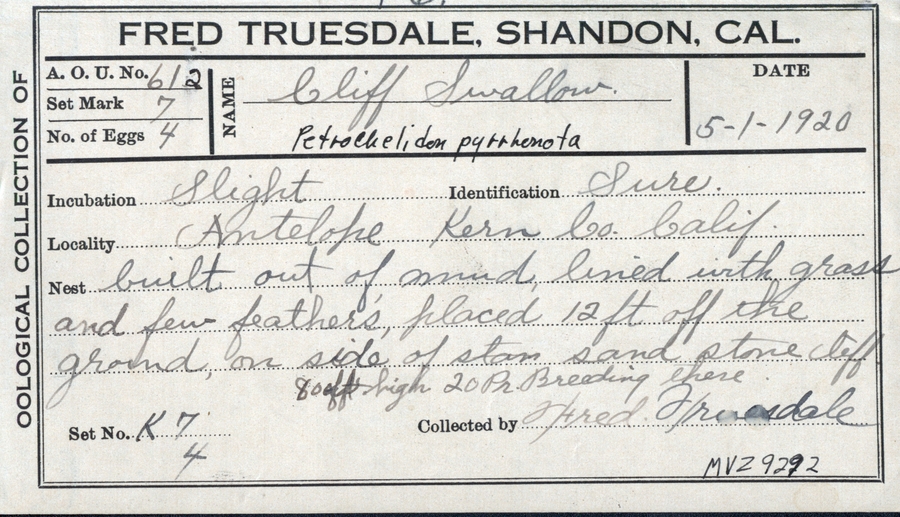 FRED TRUESDALE, SHANDON, CAL.
OOLOGICAL COLLECTION OF
A. O. U. No. 612
Set Mark 7
No. of Eggs 4
NAME Cliff Swallow.
Petrochelidon pyrrhonota
DATE
5-1-1920
Incubation Slight Identification Sure.
Locality Antelope Kern Co. Calif.
Nest built out of mud, lined with grass
and few feathers, placed 12 ft off the
ground, on side of sand stone cliff
high 20 Pr. Breeding there
Set No. K 7
4
Collected by Fred Truesdale
MVZ 9292